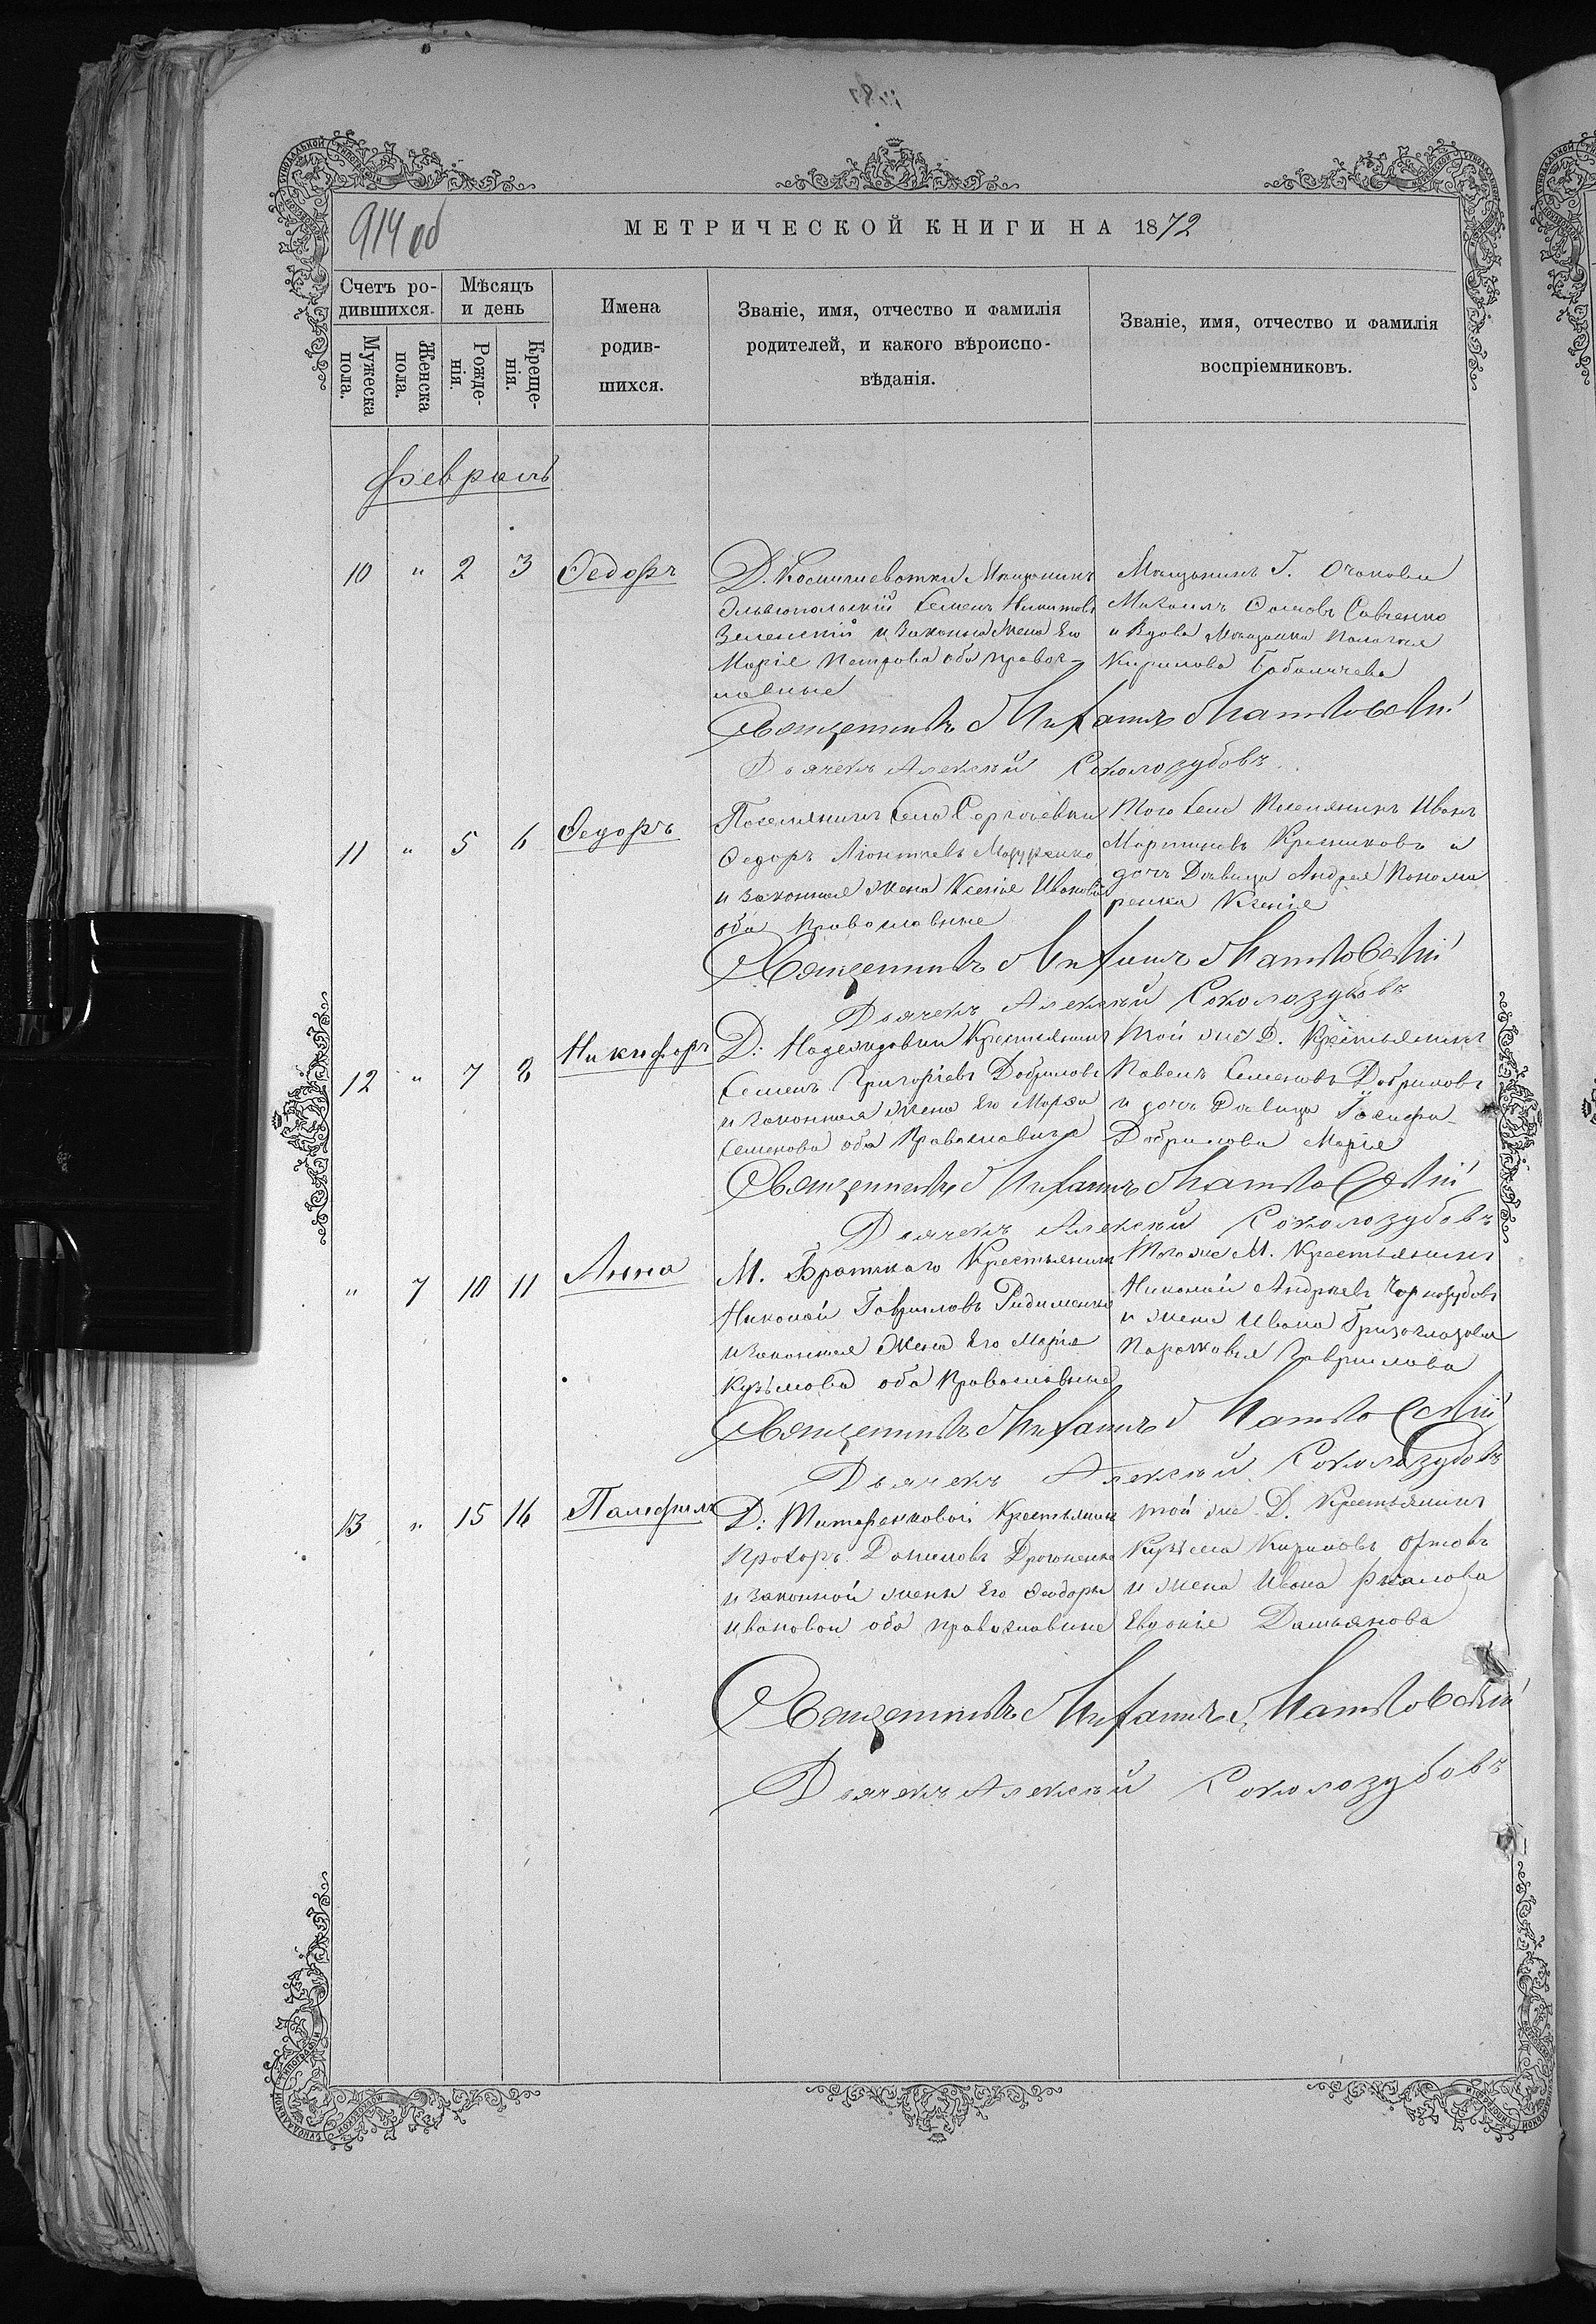 914 об
МЕТРИЧЕСКОЙ КНИГИ НА 1872
Счетъ ро-
дившихся.
Мужеска
пола.
Женска
пола.
Мѣсяцъ
и день
Рожде-
нія.
Креще-
нія.
Имена
родив-
шихся.
Званіе, имя, отчество и фамилія
родителей, и какого вѣроиспо-
вѣданія.
Званіе, имя, отчество и фамилія
воспріемниковъ.
Февраль
10 " 2 3 Ѳедоръ
Мещанинъ
Семенъ Никитовъ
Зеленскій и Законна Жена Его
Марія Петрова оба правос-
лавные
Мещанинъ Г. Очакова
Михаилъ Савченко
и Вдова Мещанка Пелагея
Кирилова
Священникъ Михаилъ
Дьячекъ Алексѣй Соколозубовъ
11 " 5 6 Ѳедоръ
Поселянинъ Села Сергѣевки
Ѳедоръ Леонтьевъ
и Законная жена Ксенія Иванова
оба Православные
Того Села Поселянинъ Иванъ
Мартиновъ и
дочь Дѣвица Андрея Понома
ренка Ксенія
Священникъ Михаилъ
Дьячекъ Алексѣй Соколозубовъ
12 " 7 8 Никифоръ
Д: Надеждовки Крестьянинъ
Семенъ Григоріевъ Добриловъ
и Законная Жена Его Марѳа
Семенова оба Православные
Той же Д. Крестьянинъ
Павелъ Семеновъ Добриловъ
и дочь Дѣвица Іосифа
Добрилова Марія
Священникъ Михаилъ
Дьячекъ Алексѣй Соколозубовъ
" 7 10 11 Анна
М. Братскаго Крестьянинъ
Николай Гавриловъ
и Законная Жена Его Марія
Кузьмова оба Православные
Того же М. Крестьянинъ
Николай Андреевъ Чорнозубовъ
и жена Ивана
Парасковья Гаврилова
Священникъ Михаилъ
Дьячекъ Алексѣй Соколозубовъ
13 " 15 16 Памфилъ
Д: Крестьянинъ
Прохоръ Даниловъ
и Законной жены Его Ѳеодоры
Ивановой оба православные
той же Д. Крестьянинъ
Кузьма Кириловъ
и жена Ивана
Евдокія Дамьянова
Священникъ Михаилъ
Дьячекъ Алексѣй Соколозубовъ